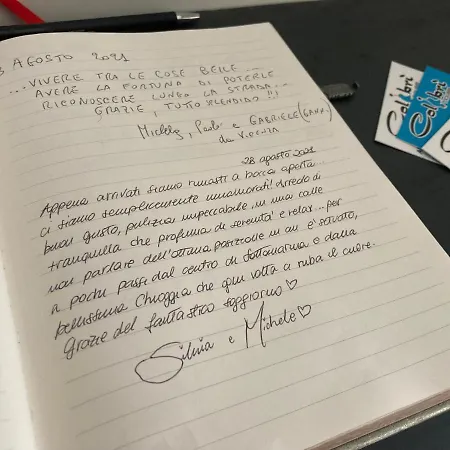 AGOSTO 2021
...VIVERE TRA LE COSE BELLE...
AVERE LA FORTUNA DI POTERLE
RICONOSCERE LUNGO LA STRADA...
GRAZIE, TUTTO SPLENDIDO!!!
Michela, Paolo e GABRIELE
da VICENZA
28 agosto 2021
Appena arrivati siamo rimasti a bocca aperta...
ci siamo semplicemente innamorati! Arredo di
buon gusto, pulizia impeccabile, in una calle
tranquilla che profuma di serenità e relax... per
non parlare dell'ottima posizione in cui è situato,
a pochi passi dal centro di Sottomarina e dalla
bellissima Chioggia che ogni volta ci ruba il cuore.
Grazie del fantastico soggiorno ♡
Silvia e Michele ♡
Colibrì
Colibrì